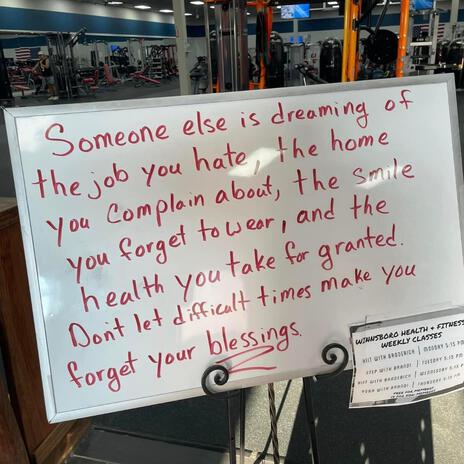 Someone else is dreaming of
the job you hate, the home
you complain about, the smile
you forget to wear, and the
health you take for granted.
Don't let difficult times make you
forget your blessings.
WINNSBORO HEALTH & FITNESS
WEEKLY CLASSES
HIIT WITH BRODERICH | MONDAY 5:15 PM
STEP WITH BRANDI | TUESDAY 5:15 P
HIIT WITH BRODERICH | WEDNESDAY 5:15 P
WITH BRANDI | THURSDAY 5:15